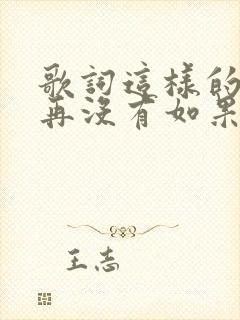 歌詞這樣的
再沒有如果
王志